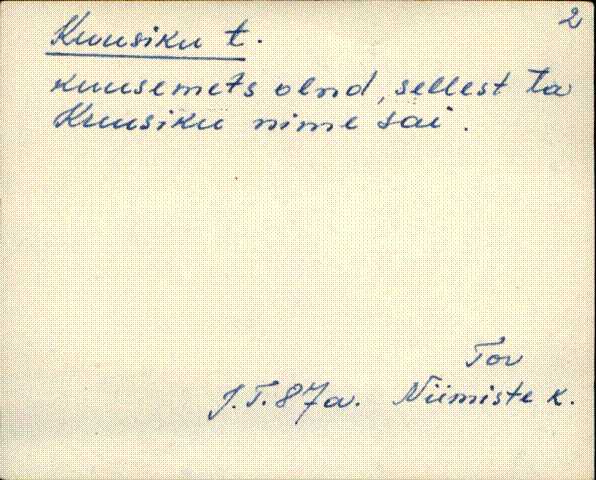 2
Kuusiku t.
kuusemets olnd, sellest ta
Kuusiku nime sai.
Tor
J.T. 87a. Niimiste k.